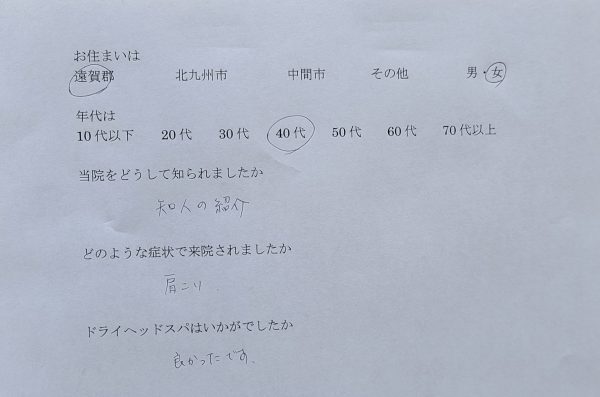 お住まいは
遠賀郡 北九州市 中間市 その他 男・女
年代は
10代以下 20代 30代 40代 50代 60代 70代以上
当院をどうして知られましたか
知人の紹介
どのような症状で来院されましたか
肩こり
ドライヘッドスパはいかがでしたか
良かったです。